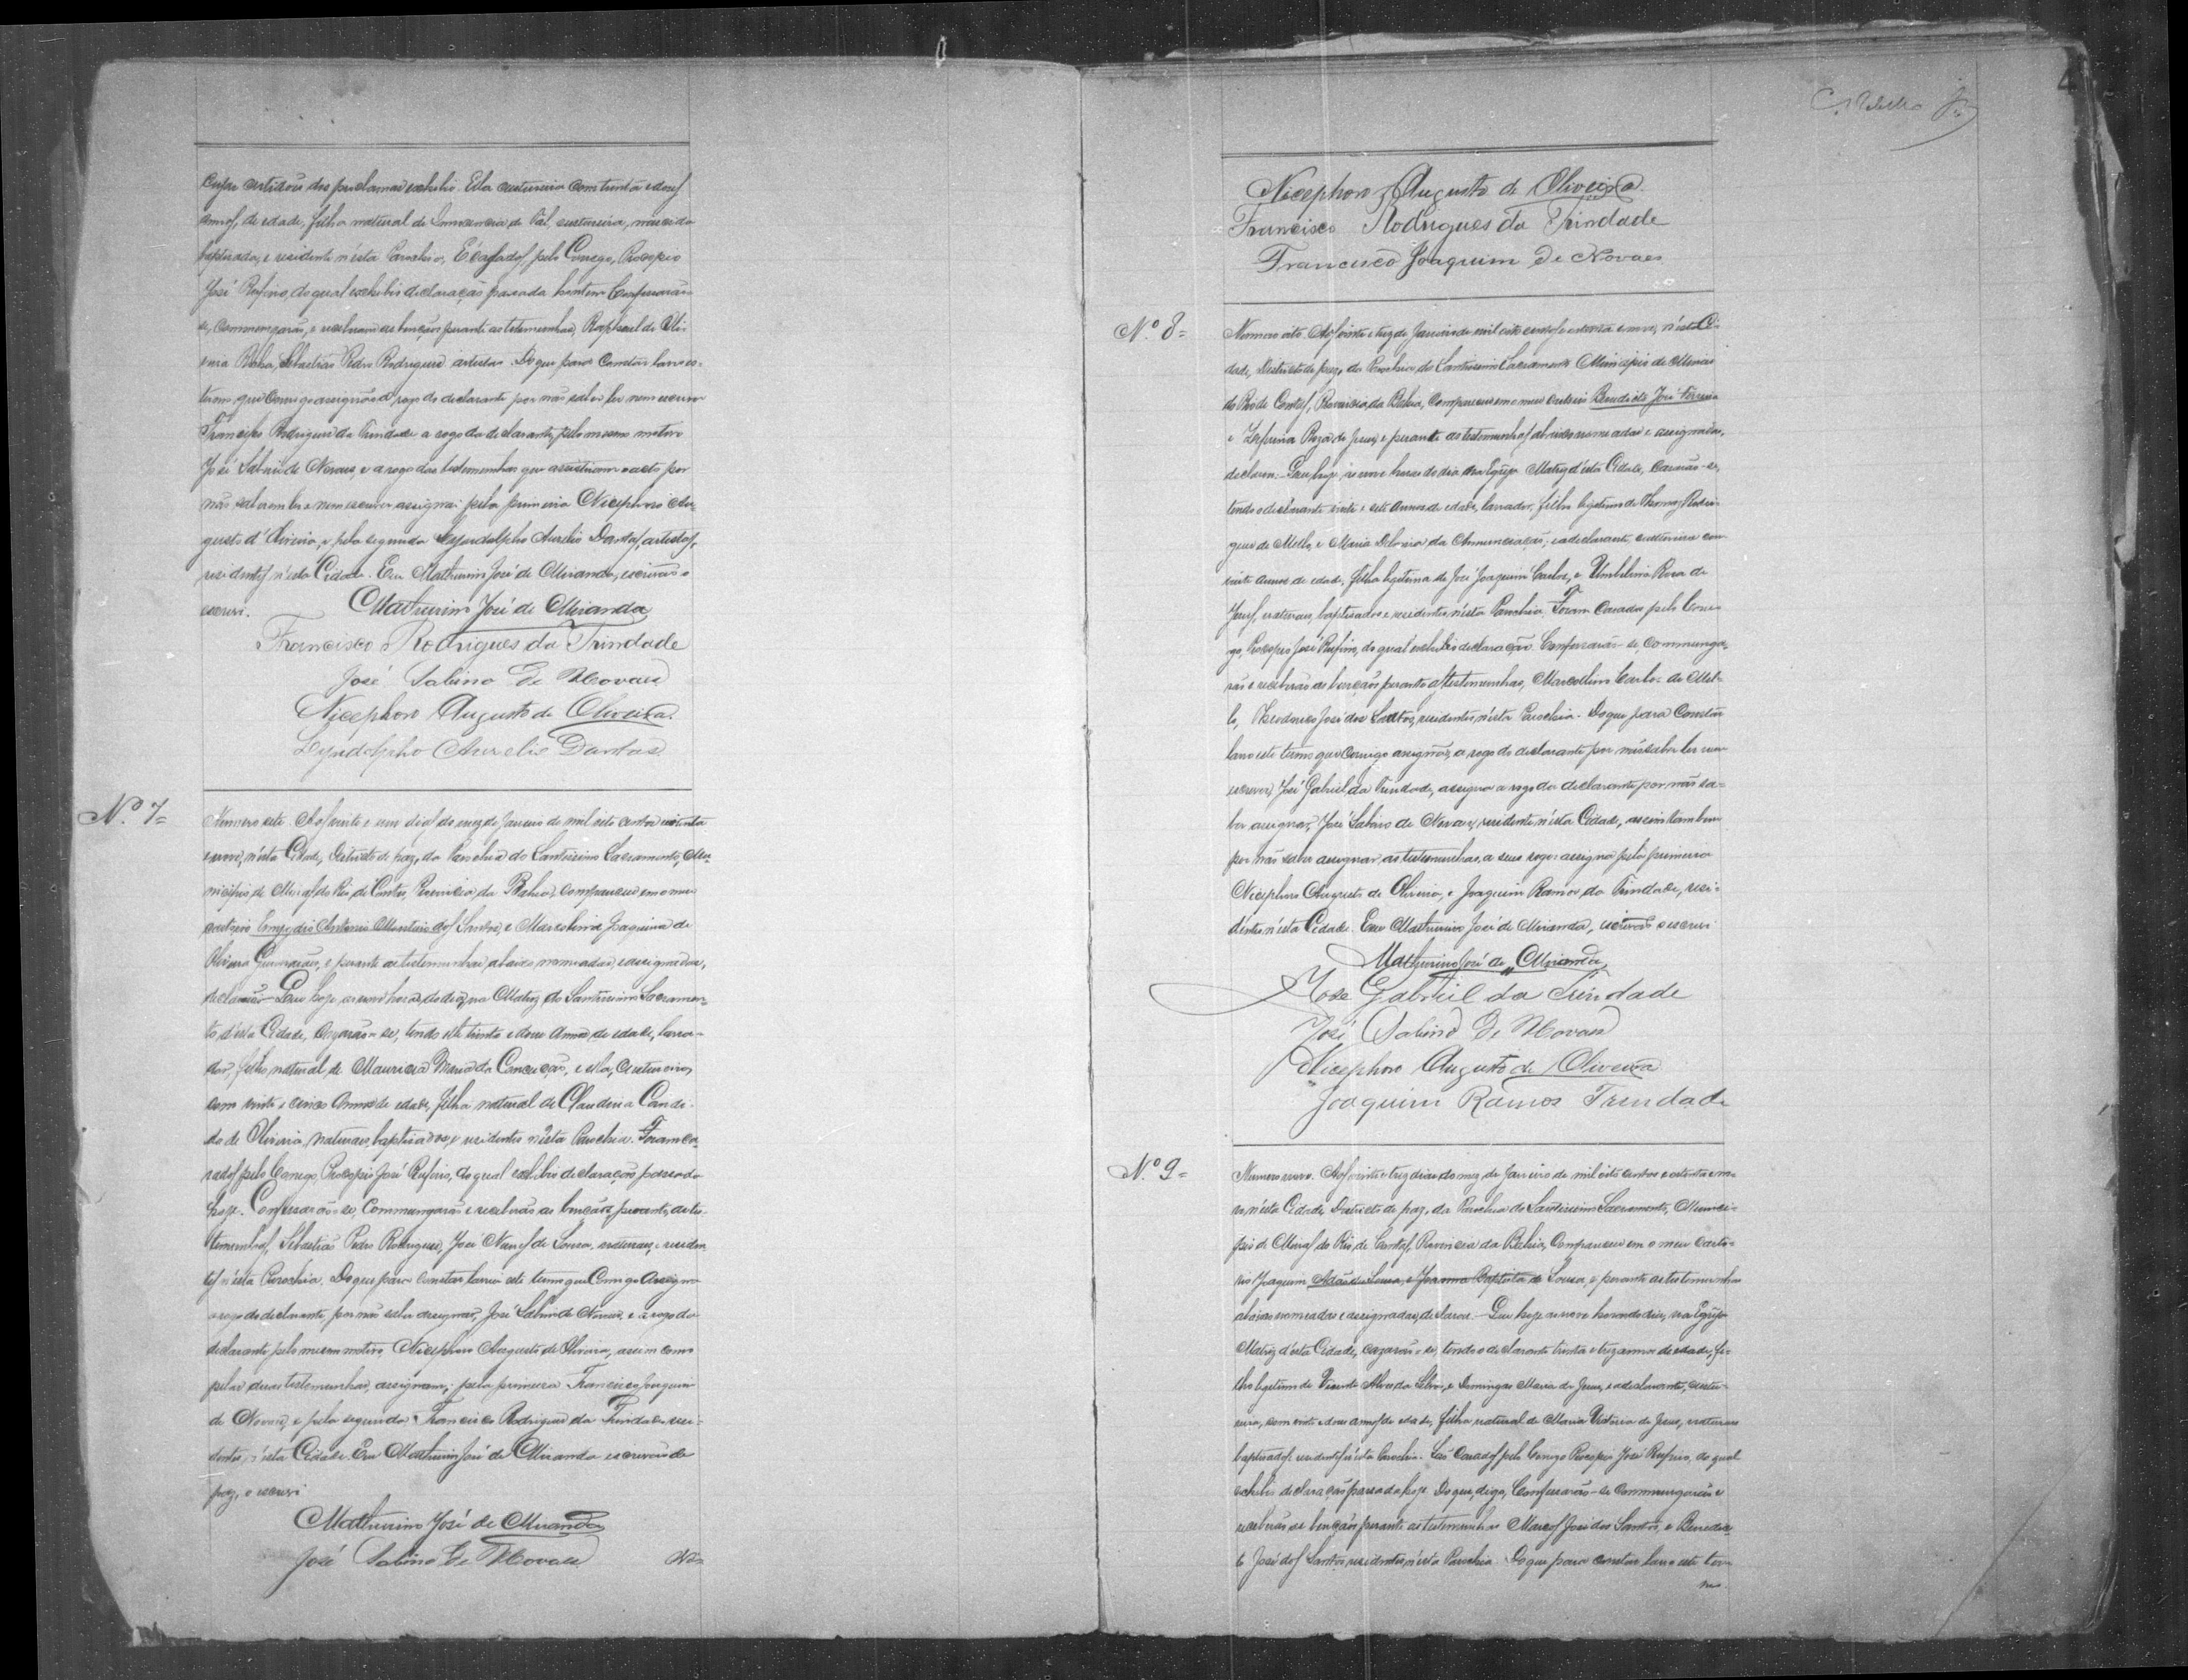 cujas certidões dos proclamas exhibio. Ella costureira com trinta e dous
annos, de edade, filha natural de Innocencia de Tal, costureira, nascida
baptisada, e residente n'esta Parochia. E casados pelo Conego, Procopio
José Rufino, do qual exhibio declaração passada hontem Confessarão-
se, commungarão, e receberam as bençãos perante as testemunhas, Raphael de Oli-
veira Rocha, Sebastião Pedro Rodrigues artistas. Do que para constar lavro es-
te termo que comigo assignão a rogo do declarante por não saber ler nem escrever
Francisco Rodrigues da Trindade a rogo da declarante, pelo mesmo motivo
José Sabino de Novaes, e a rogo das testemunhas que assistiram o acto por
não saberem ler e nem escrever assignão pela primeira Nicephoro Au-
gusto d'Oliveira, e pela segunda Lyndolpho Aurelio Dantas, artistas,
residentes n'esta Cidade. Eu Mathurino José de Miranda, escrivão o
escrevi. Mathurino José de Miranda
Francisco Rodrigues da Trindade
José Sabino de Novaes
Nicephoro Augusto de Oliveira.
Lyndolpho Aurelio Dantas
Nº 7=
Numero sete. Aos vinte e um dias do mez de Janeiro de mil oito centos oitenta
e nove, n'esta Cidade, Districto de paz, da Parochia do Santissimo Sacramento, Mu-
nicipio de Minas do Rio de Contas, Provincia da Bahia, compareceu em o meu
cartorio Antonio Monteiro dos Santos, e Marcolina Joaquina de
Oliveira Guimarães, e perante as testemunhas abaixo nomeadas, e assignadas,
declararão - Que hoje, as nove horas do dia, na Matriz do Santissimo Sacramen-
to d'esta Cidade, Casarão-se, tendo elle trinta e dous annos de edade, lavra-
dor, filho natural de Mauricia Maria da Conceição, e ella, costureira
com vinte e cinco annos de edade, filha natural de Claudina Candi-
da de Oliveira, naturaes, baptisados, e residentes n'esta Parochia. Foram ca-
sados pelo Conego, Procopio José Rufino, do qual exhibio declaração passada
hoje. Confessarão-se, Commungarão e receberão as bençãos perante, as tes-
temunhas, Sebastião Pedro Rodrigues, José Nunes de Souza, naturaes, e residen-
tes n'esta Parochia. Do que para constar lavrei este termo que Comigo Assigna
a rogo do declarante, por não saber assignar, José Sabino de Novaes, e a rogo da
declarante pelo mesmo motivo Nicephoro Augusto de Oliveira, assim como
pelas duas testemunhas, assignam; pela primeira Francisco Joaquim
de Novaes, e pela segunda Francisco Rodrigues da Trindade resi-
dentes n'esta Cidade. Eu Mathurino José de Miranda escrivão de
paz, o escrevi
Mathurino José de Miranda
José Sabino de Novaes
4
Nicephoro Augusto de Oliveira.
Francisco Rodrigues da Trindade
Francisco Joaquim de Novaes
Nº 8=
Numero oito. Aos vinte e trez de Janeiro de mil oito centos e oitenta e nove, n'esta Ci-
dade, Districto de paz, da Parochia do Santissimo Sacramento Municipio de Minas
do Rio de Contas, Provincia da Bahia, compareceu em o meu cartorio Benedicto José Pereira
e Zeferina Roza de Jesus, e perante as testemunhas abaixo nomeadas e assignadas,
declarou - Que hoje as nove horas do dia na Egreja Matriz d'esta Cidade, Casarão-se,
tendo o declarante vinte e sete annos de edade, lavrador, filho legitimo de Thomaz Rodri-
gues de Mello, e Maria da Annunciação; e a declarante costureira com
vinte annos de edade, filha legitima de José Joaquim Carlos, e Umbelina Rosa de
Jesus, naturaes, baptisados e residentes, n'esta Parochia. Foram Casados pelo Cone-
go, Procopio José Rufino, do qual exhibio declaração. Confessarão-se, Communga-
rão e receberão as bençãos perante as testemunhas, Marcellino Carlos de Mel-
lo, Theodoro José dos Santos, residentes n'esta Parochia. Do que para Constar
lavro este termo que comigo assigna, a rogo do declarante por não saber ler nem
escrever José Gabriel da Trindade, assigna a rogo da declarante por não sa-
ber assignar, José Sabino de Novaes, residente n'esta Cidade, assim tambem
por não saber assignar, as testemunhas, a seus rogos assigna pela primeira
Nicephoro Augusto de Oliveira, e Joaquim Ramos da Trindade, resi-
dentes n'esta Cidade. Eu Mathurino José de Miranda, escrivão o escrevi
Mathurino José de Miranda
José Gabriel da Trindade
José Sabino de Novaes
Nicephoro Augusto de Oliveira
Joaquim Ramos Trindade
Nº 9=
Numero nove. Aos vinte e trez dias do mez de Janeiro de mil oito centos e oitenta e no-
ve, n'esta Cidade Districto de paz, da Parochia do Santissimo Sacramento, Munici-
pio de Minas do Rio de Contas, Provincia da Bahia, Compareceu em o meu carto-
rio Joaquim Adão de Souza, e Joanna Baptista de Souza, e perante as testemunhas
abaixo nomeadas e assignadas, declarou. - Que hoje as nove horas do dia, na Egreja
Matriz d'esta Cidade, cazarão-se, tendo o declarante trinta e trez annos de edade, fi-
lho legitimo de Vicente Alves da Silva, e Domingas Maria de Jesus, e a declarante, costu-
reira, com vinte e dous annos de edade, filha natural de Maria Victoria de Jesus, naturaes
baptisados residentes n'esta Parochia. São Casados pelo Conego Procopio José Rufino, do qual
exhibio declaração passada hoje. Do que, digo, Confessarão-se Commungarão e
receberão as bençãos perante as testemunhas Marcos José dos Santos, e Benedic-
to José dos Santos, residentes, n'esta Parochia. Do que para constar lavro este ter-
mo